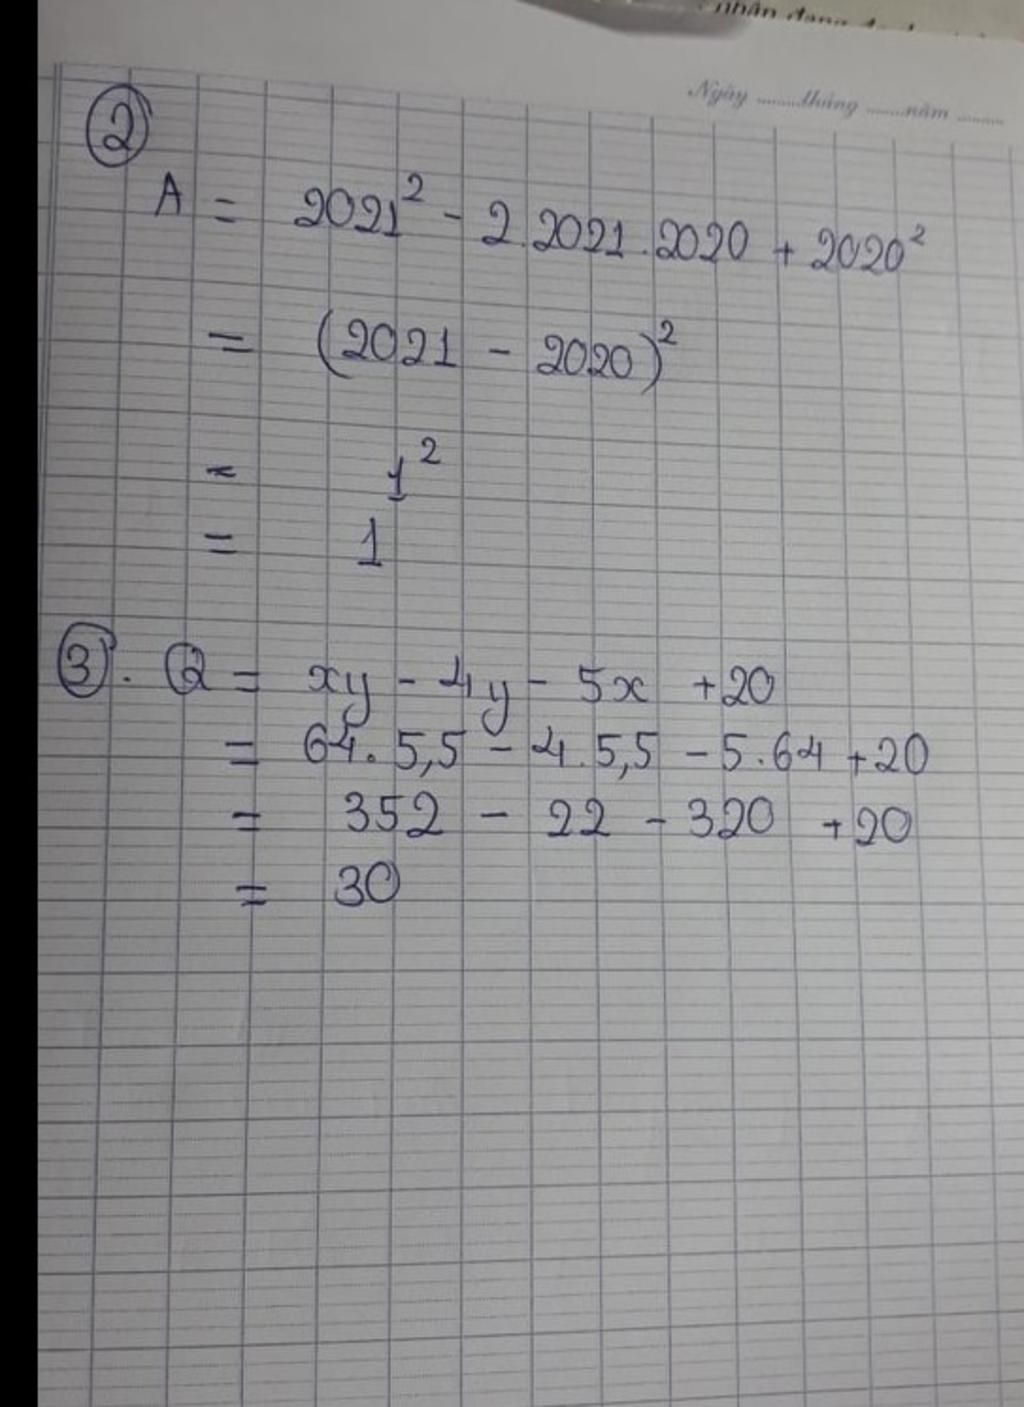 nhân dạng
Ngày ........tháng ........năm .........
2
A = 2021² - 2.2021.2020 + 2020²
= (2021 - 2020)²
= 1²
= 1
3. Q = xy - 4y - 5x + 20
= 64.5,5 - 4.5,5 - 5.64 + 20
= 352 - 22 - 320 + 20
= 30